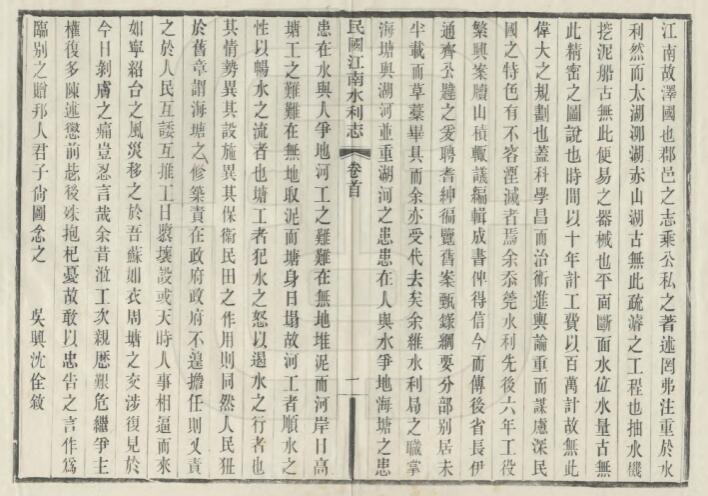 江南故澤國也郡邑之志乘公私之著述罔弗注重於水
利然而太湖澱湖赤山湖古無此疏濬之工程也抽水機
挖泥船古無此便易之器械也平面斷面水位水量古無
此精密之圖說也時間以十年計工費以百萬計故無此
偉大之規劃也蓋科學昌而治術進輿論重而謀慮深民
國之特色有不容湮滅者焉余忝筦水利先後六年工役
繁興案牘山積輒議編輯成書俾得信今而傳後省長伊
通齊公韙之爰聘耆紳徧覽舊案甄錄綱要分部別居未
半載而草藁畢具而余亦受代去矣余維水利局之職掌
海塘與湖河並重湖河之患患在人與水爭地海塘之患
民國江南水利志 卷首 一
患在水與人爭地河工之難難在無地堆泥而河岸日高
塘工之難難在無地取泥而塘身日塌故河工者順水之
性以暢水之流者也塘工者犯水之怒以遏水之行者也
其情勢異其設施異其保衛民田之作用則同然人民狃
於舊章謂海塘之修築責在政府政府不遑擔任則又責
之於人民互諉互推工日隳壞設或天時人事相逼而來
如寧紹台之風災移之於吾蘇如衣周塘之交涉復見於
今日剝膚之痛豈忍言哉余昔涖工次親歷艱危繼爭主
權復多陳述懲前毖後殊抱杞憂故敢以忠告之言作為
臨別之贈邦人君子尙圖念之
吳興沈佺敘